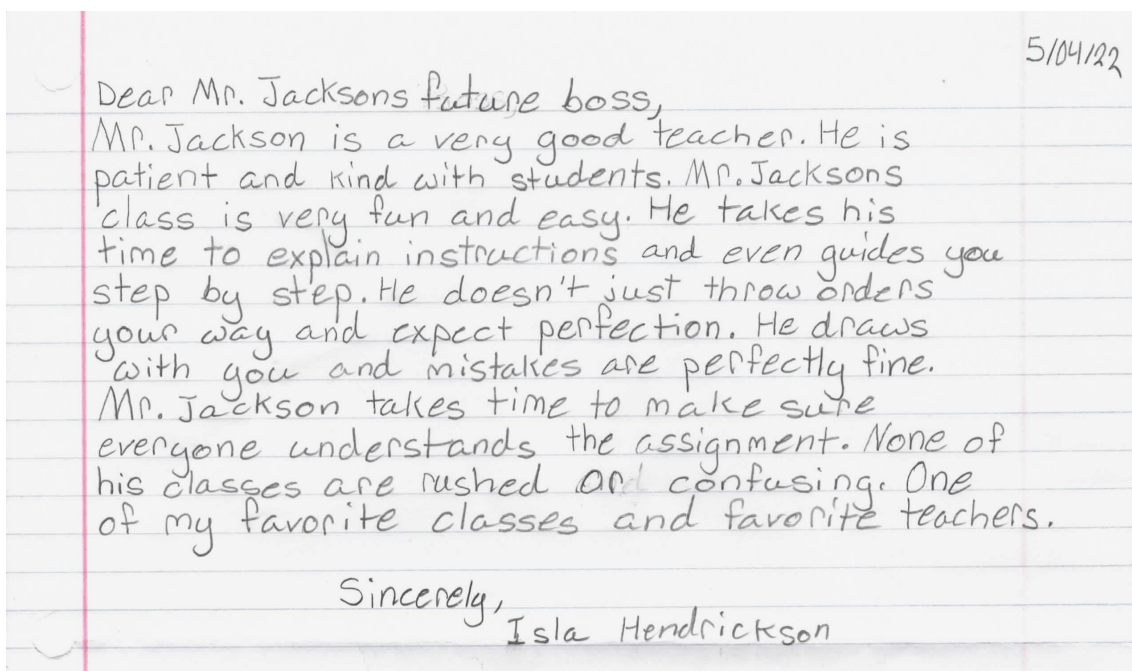 5/04/22
Dear Mr. Jacksons future boss,
Mr. Jackson is a very good teacher. He is
patient and kind with students. Mr. Jacksons
class is very fun and easy. He takes his
time to explain instructions and even guides you
step by step. He doesn't just throw orders
your way and expect perfection. He draws
with you and mistakes are perfectly fine.
Mr. Jackson takes time to make sure
everyone understands the assignment. None of
his classes are rushed or confusing. One
of my favorite classes and favorite teachers.
Sincerely,
Isla Hendrickson